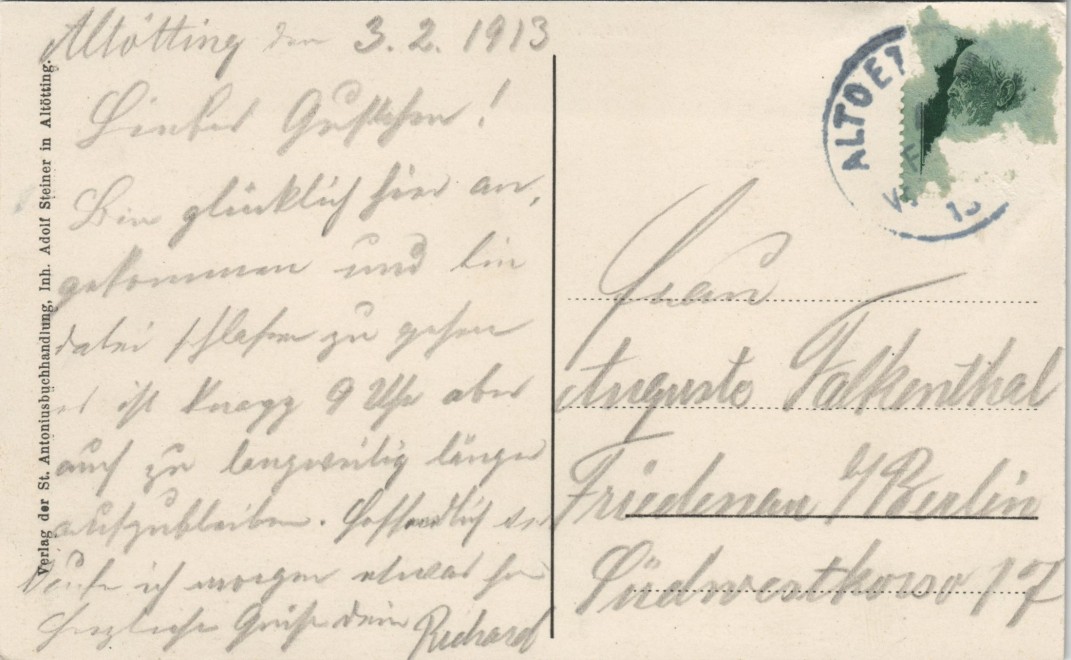 Altötting den 3. 2. 1913
Liebes Gustchen!
Bin glücklich hier an,
gekommen und bin
dabei schlafen zu gehen
es ist knapp 9 Uhr aber
auch zu langweilig länger
aufzubleiben. Hoffendlich
ich morgen etwas
Herzliche Grüße dein Richard
Verlag der St. Antoniusbuchhandlung, Inh. Adolf Steiner in Altötting.
ALTOET
13
Frau
Auguste Falkenthal
Friedenau b/Berlin
Südwestkorso 17